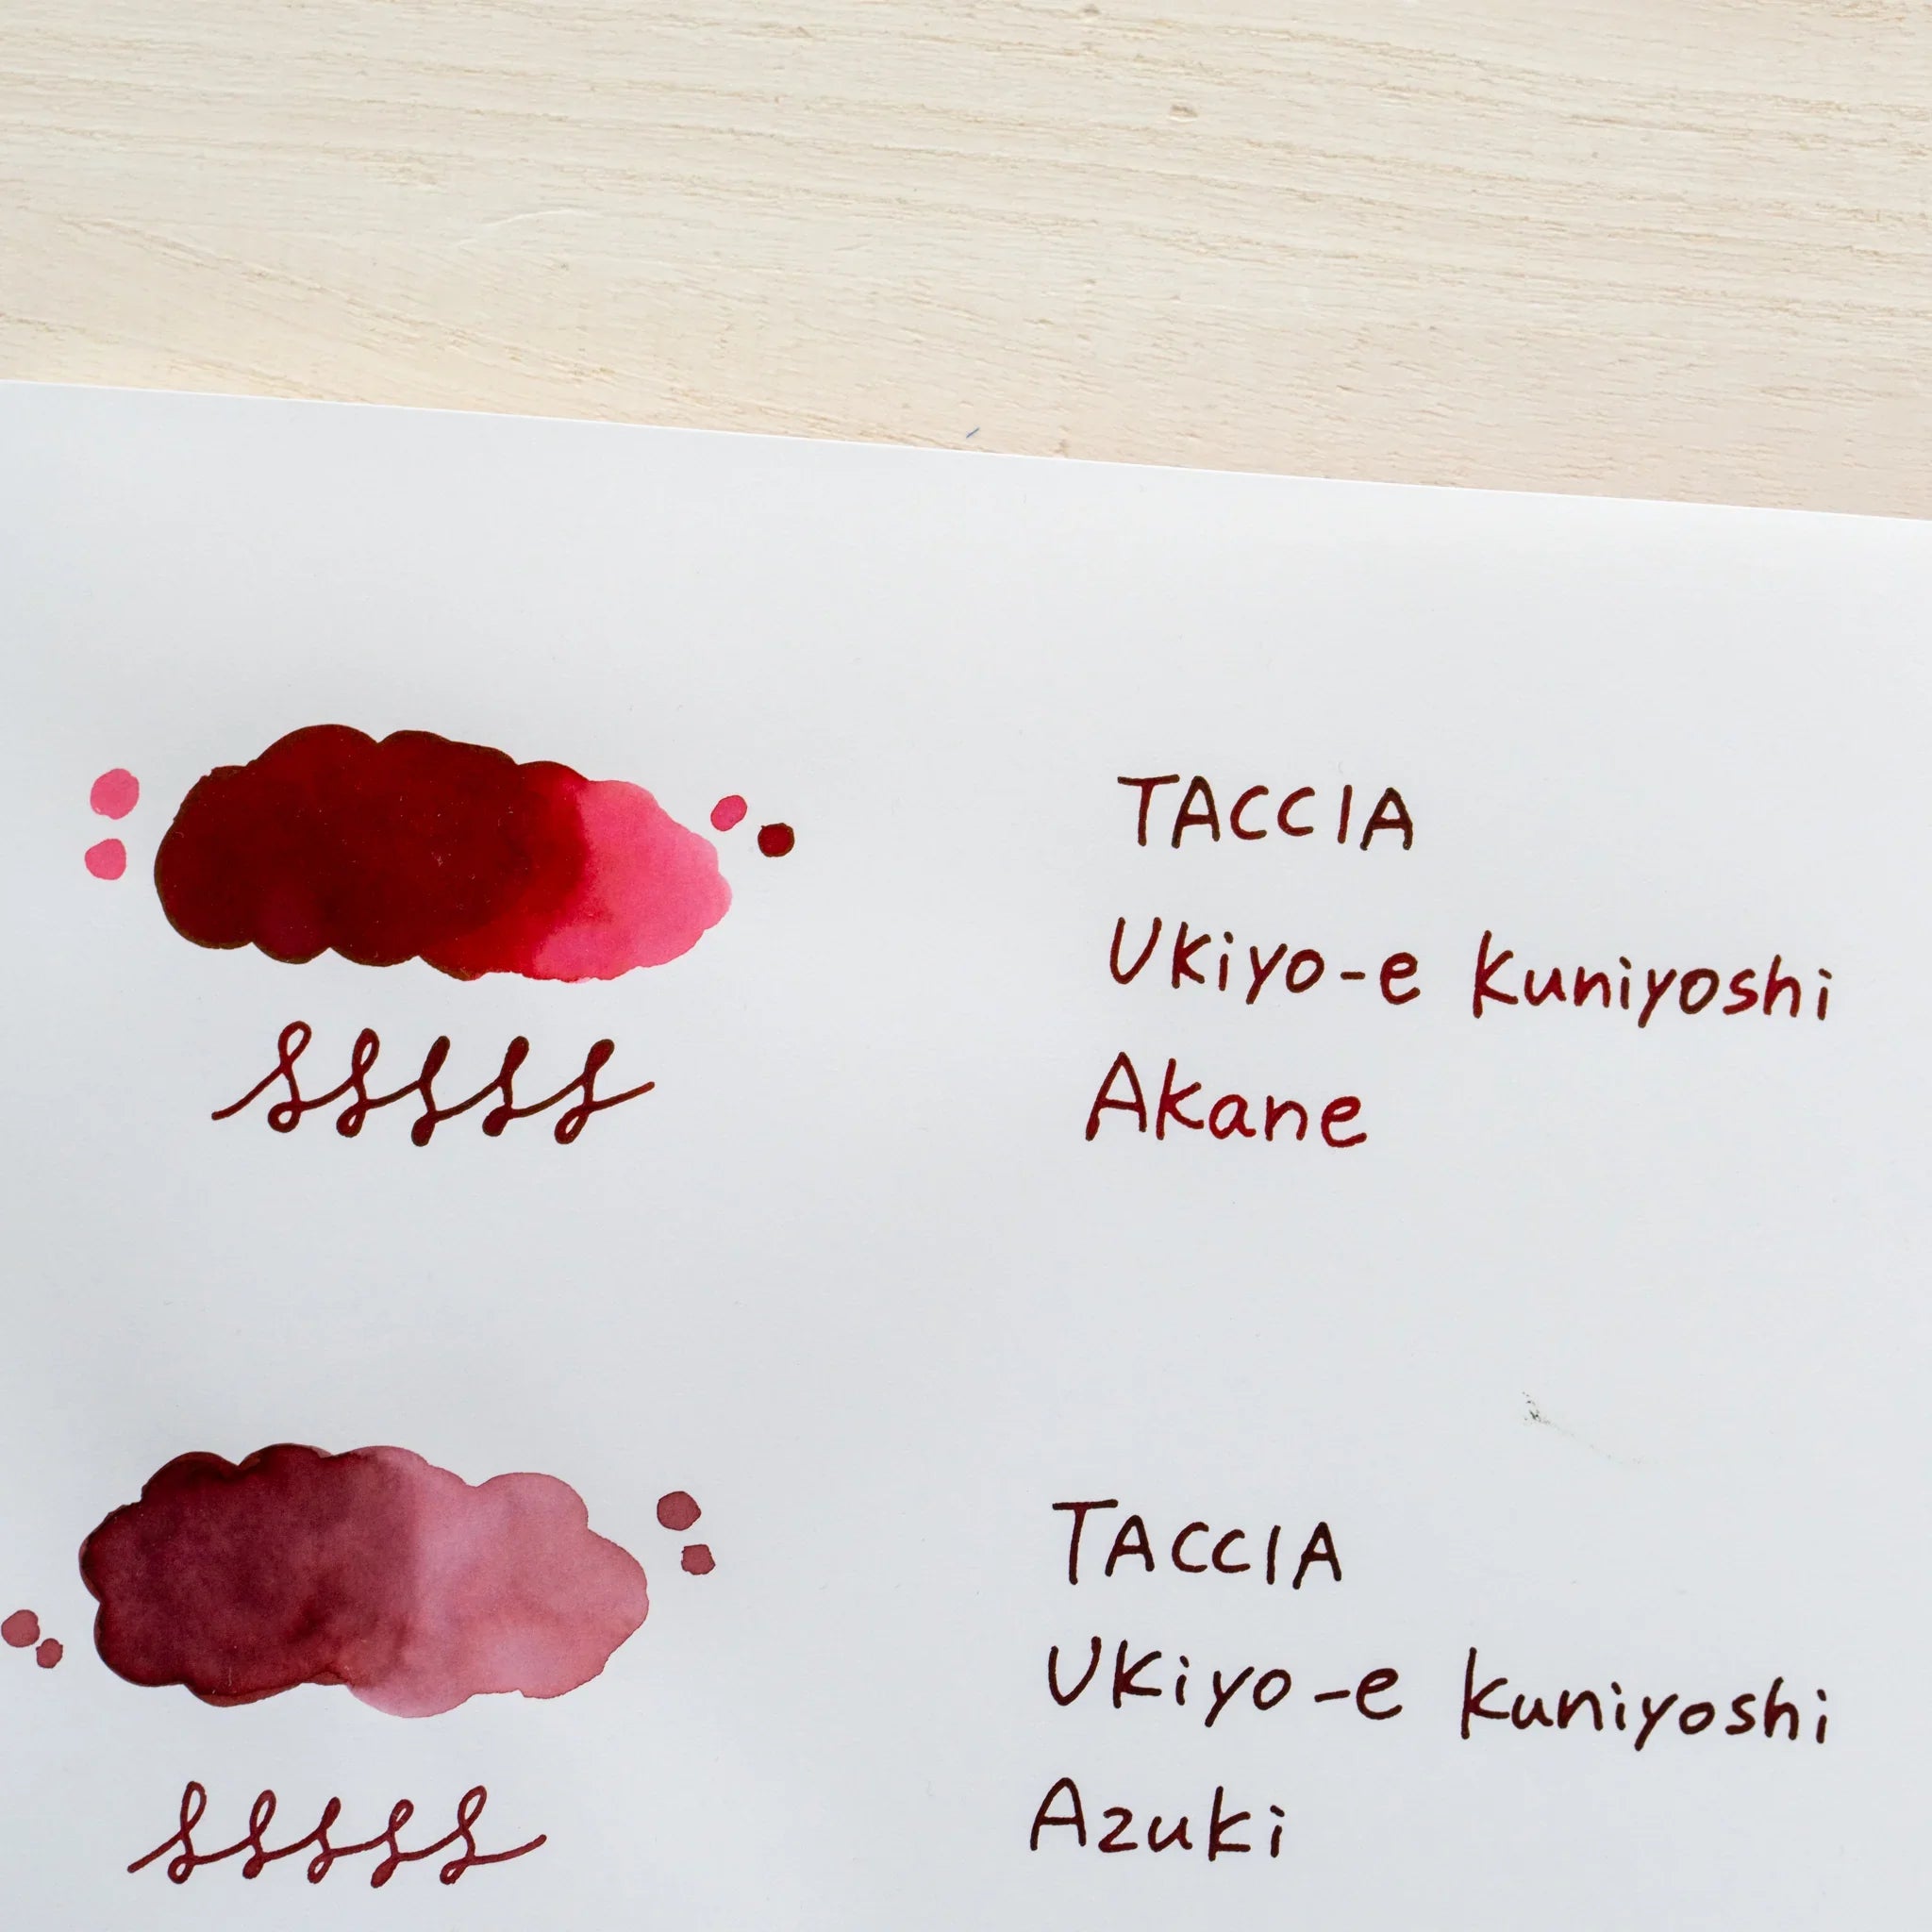 TACCIA
Ukiyo-e Kuniyoshi
Akane
TACCIA
Ukiyo-e Kuniyoshi
Azuki